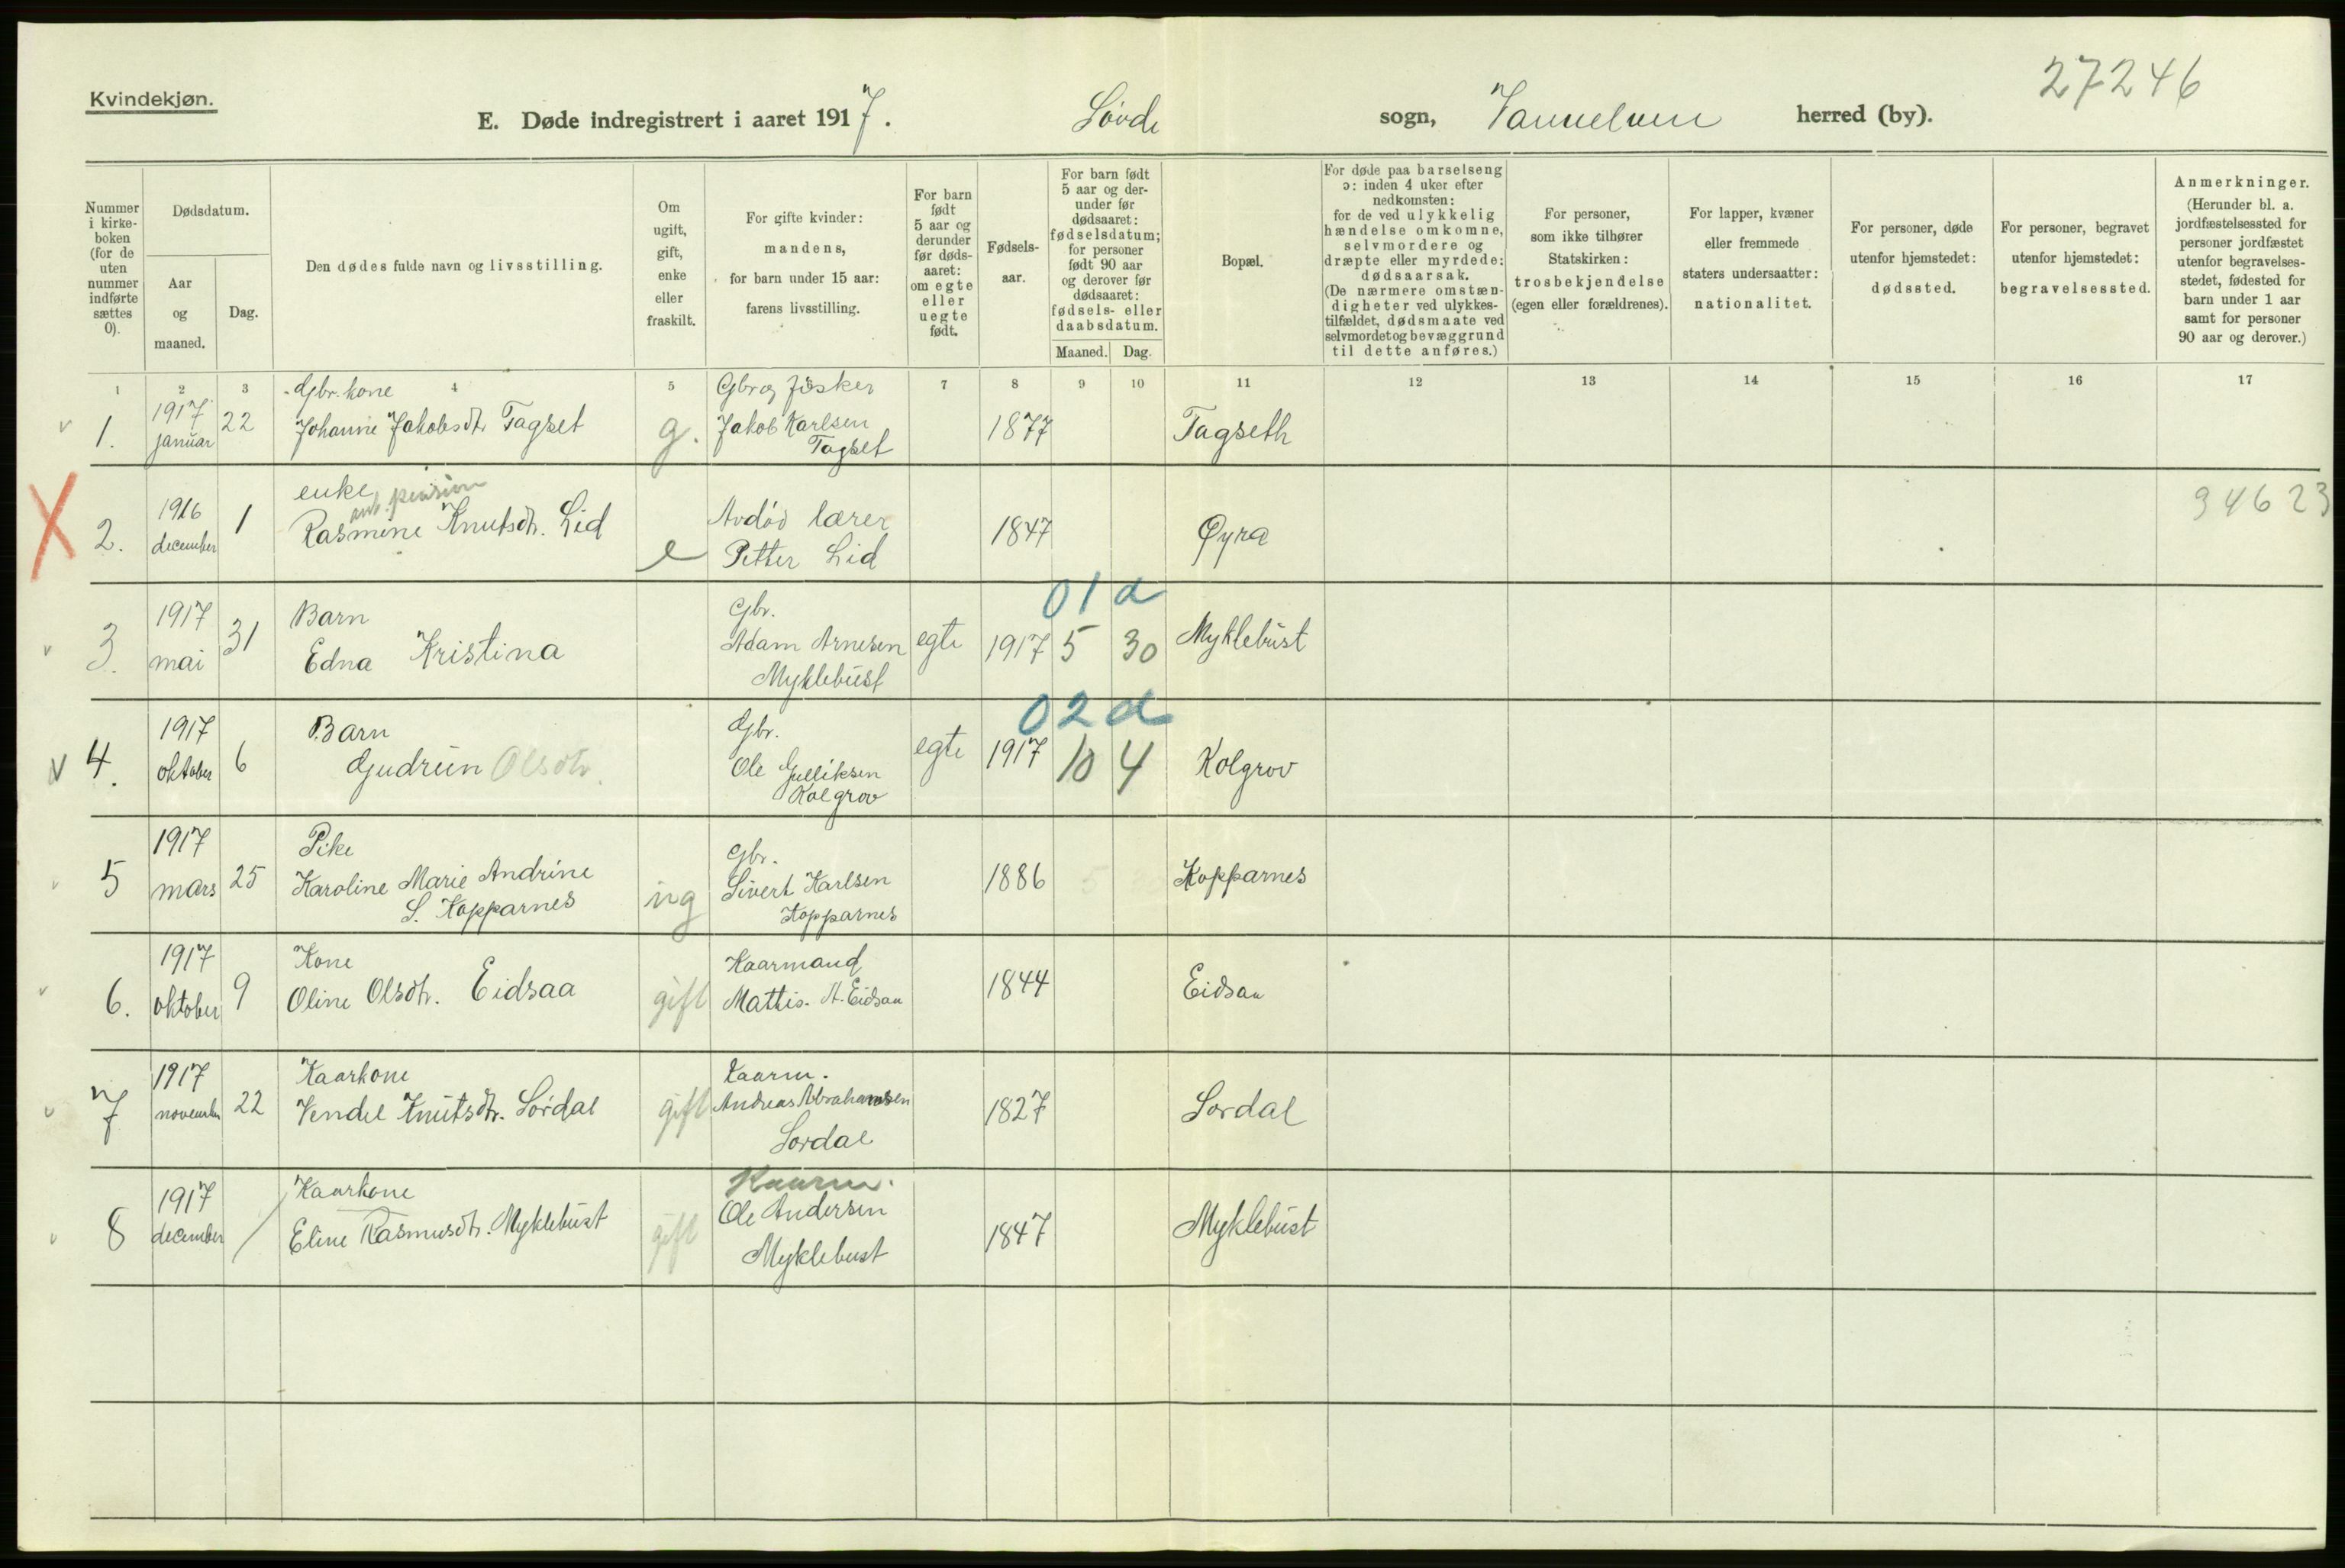 27246
Kvindekjøn.
E. Døde indregistrert i aaret 1917. Sövde sogn, Vannelven herred (by).
Nummer i kirke-boken (for de uten nummer indførte sættes 0).
Dødsdatum.
Aar og maaned.
Dag.
Den dødes fulde navn og livsstilling.
Om ugift, gift, enke eller fraskilt.
For gifte kvinder: mandens, for barn under 15 aar: farens livsstilling.
For barn født 5 aar og derunder før døds-aaret: om egte eller uegte født.
Fødsels-aar.
For barn født 5 aar og der-under før dødsaaret: fødselsdatum; for personer født 90 aar og derover før dødsaaret: fødsels- eller daabsdatum.
Maaned. Dag.
Bopæl.
For døde paa barselseng ɔ: inden 4 uker efter nedkomsten: for de ved ulykkelig hændelse omkomne, selvmordere og dræpte eller myrdede: dødsaarsak. (De nærmere omstæn-digheter ved ulykkes-tilfældet, dødsmaate ved selvmordet og bevæggrund til dette anføres.)
For personer, som ikke tilhører Statskirken: trosbekjendelse (egen eller forældrenes).
For lapper, kvæner eller fremmede staters undersaatter: nationalitet.
For personer, døde utenfor hjemstedet: dødssted.
For personer, begravet utenfor hjemstedet: begravelsessted.
Anmerkninger. (Herunder bl. a. jordfæstelsessted for personer jordfæstet utenfor begravelses-stedet, fødested for barn under 1 aar samt for personer 90 aar og derover.)
1 2 3 4 5 6 7 8 9 10 11 12 13 14 15 16 17
1. 1917 januar 22 Gbr. kone Johanne Jakobsdtr. Tagset g. Gbr og fisker Jakob Karlsen Tagset 1877 Tagseth
2. 1916 december 1 enke, pension Rasmine Knutsdtr. Lid e Avdöd lærer Petter Lid 1847 Øyra 34623
01d
3. 1917 mai 31 Barn Edna Kristina Gbr. Adam Arnesen Myklebust egte 1917 5 30 Myklebust
02d
4. 1917 oktober 6 Barn Gudrun Olsdtr. Gbr. Ole Gulliksen Kolgrov egte 1917 10 4 Kolgrov
5 1917 mars 25 Pike Karoline Marie Andrine S. Kopparnes ug Gbr. Sivert Karlsen Kopparnes 1886 5 Kopparnes
6. 1917 oktober 9 Kone Oline Olsdtr. Eidsaa gift Kaarmand Mattis A. Eidsaa 1844 Eidsaa
7 1917 november 22 Kaarkone Vendel Knutsdtr. Sördal gift Kaarm. Andreas Abrahamsen Sördal 1827 Sordal
8 1917 december 1 Kaarkone Eline Rasmusdtr. Myklebust gift Kaarm. Ole Andersen Myklebust 1847 Myklebust